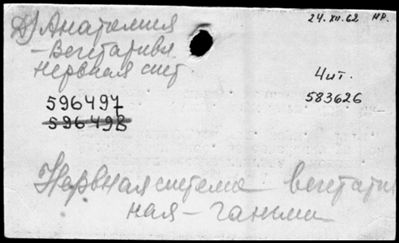 Анатомия
24.XII.62 НР.
- Вегетативн
нервная сист
Чит.
596497
583626
596498
Нервная система - вегетатив
ная - ганглии